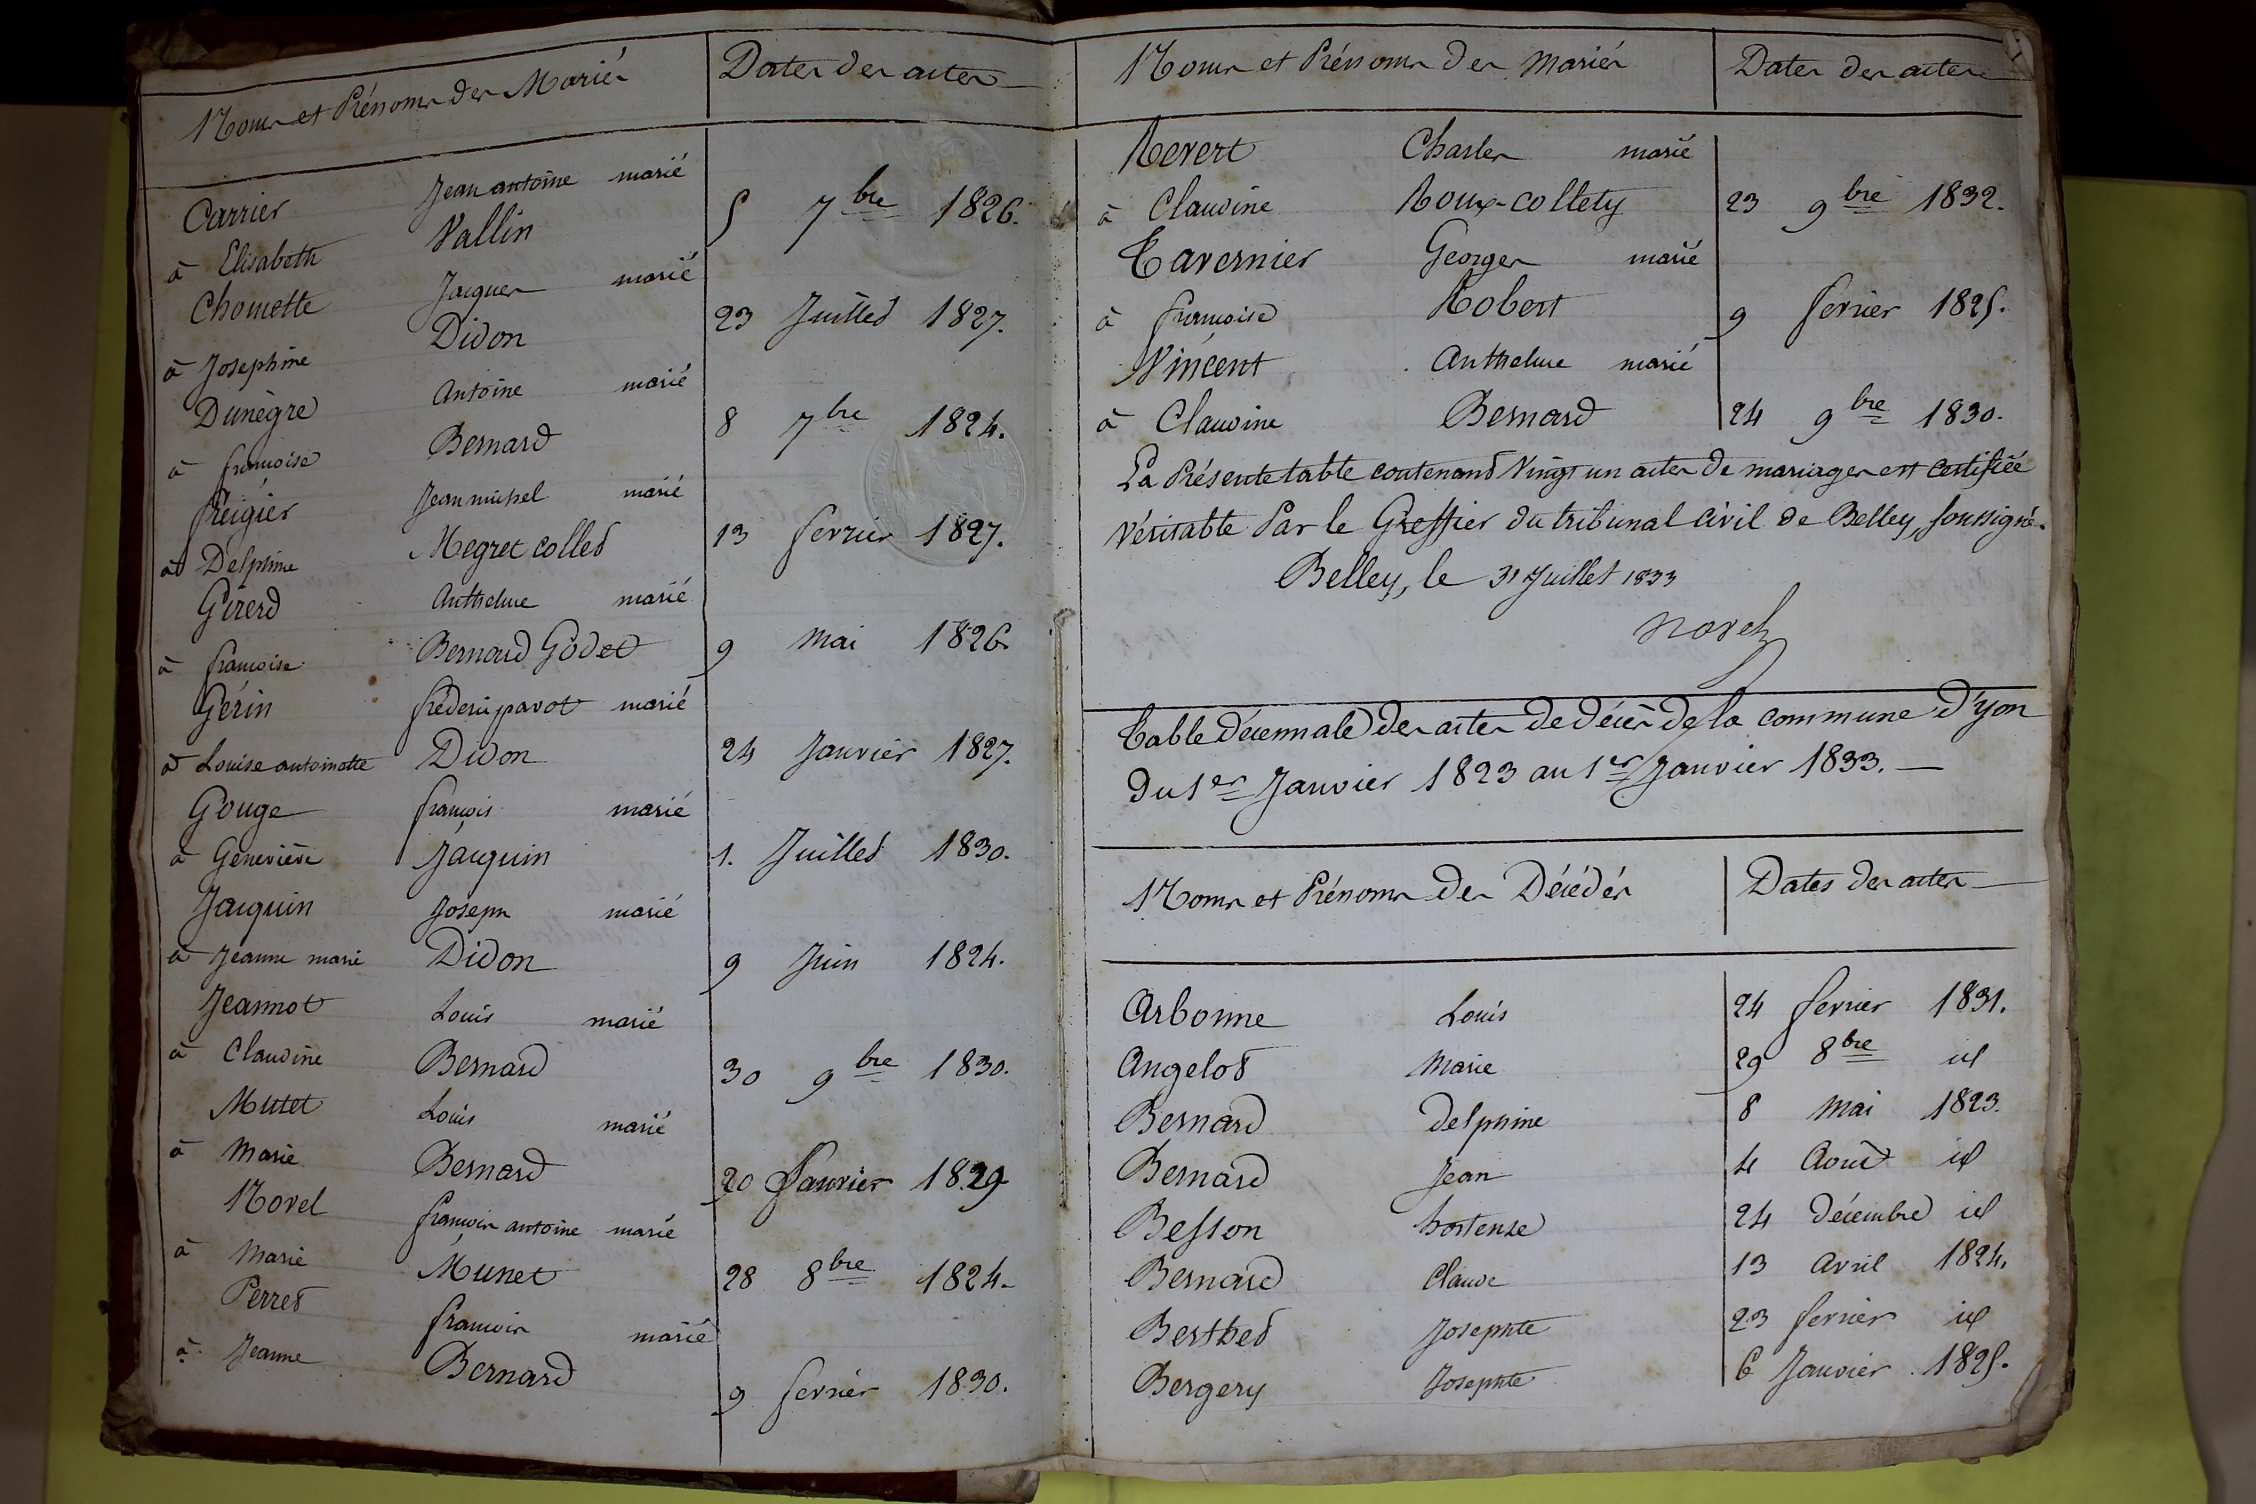 Noms et Prénoms des Mariés
Dates des actes
Carrier Jean antoine marié
à Elisabeth Vallin 5 7bre 1826.
Chomette Jacques marié
à Josephine Didon 23 Juillet 1827.
Dunègre Antoine marié
à françoise Bernard 8 7bre 1824.
freigier Jean michel marié
à Delphine Megret collet 13 fevrier 1827.
Girerd Anthelme marié
à françoise Bernard Godet 9 mai 1826.
Gérin fréderic pavot marié
à Louise antoinette Didon 24 Janvier 1827.
Gouge françois marié
à Geneviève Jacquin 1. Juillet 1830.
Jacquin Joseph marié
à Jeanne marie Didon 9 Juin 1824.
Jeannot Louis marié
à Claudine Bernard 30 9bre 1830.
Mutet Louis marié
à Marie Bernard 20 Janvier 1829
Novel françois antoine marié
à Marie Munet 28 8bre 1824.
Perret françois marié
à Jeanne Bernard 9 fevrier 1830.
Noms et Prénoms des Mariés
Dates des actes
Revert Charles marié
à Claudine Roux-collety 23 9bre 1832.
Tavernier Georges marié
à françoise Robert 9 fevrier 1825.
Vincent Anthelme marié
à Claudine Bernard 24 9bre 1830.
La Présente table contenant Vingt un actes de mariages est certifiée
véritable Par le Greffier du tribunal civil de Belley, soussigné.
Belley, le 31 Juillet 1833
Table Décennale des actes de décès de la commune d'yon
Du 1er Janvier 1823 au 1er Janvier 1833.
Noms et Prénoms des Décédés
Dates des actes
Arbonne Louis 24 fevrier 1831.
Angelot Marie 29 8bre id
Bernard Delphine 8 Mai 1823.
Bernard Jean 4 Août id
Besson hortense 24 décembre id
Bernard Claude 13 Avril 1824.
Berthet Josephte 23 fevrier id
Bergery Josephte 6 Janvier 1825.